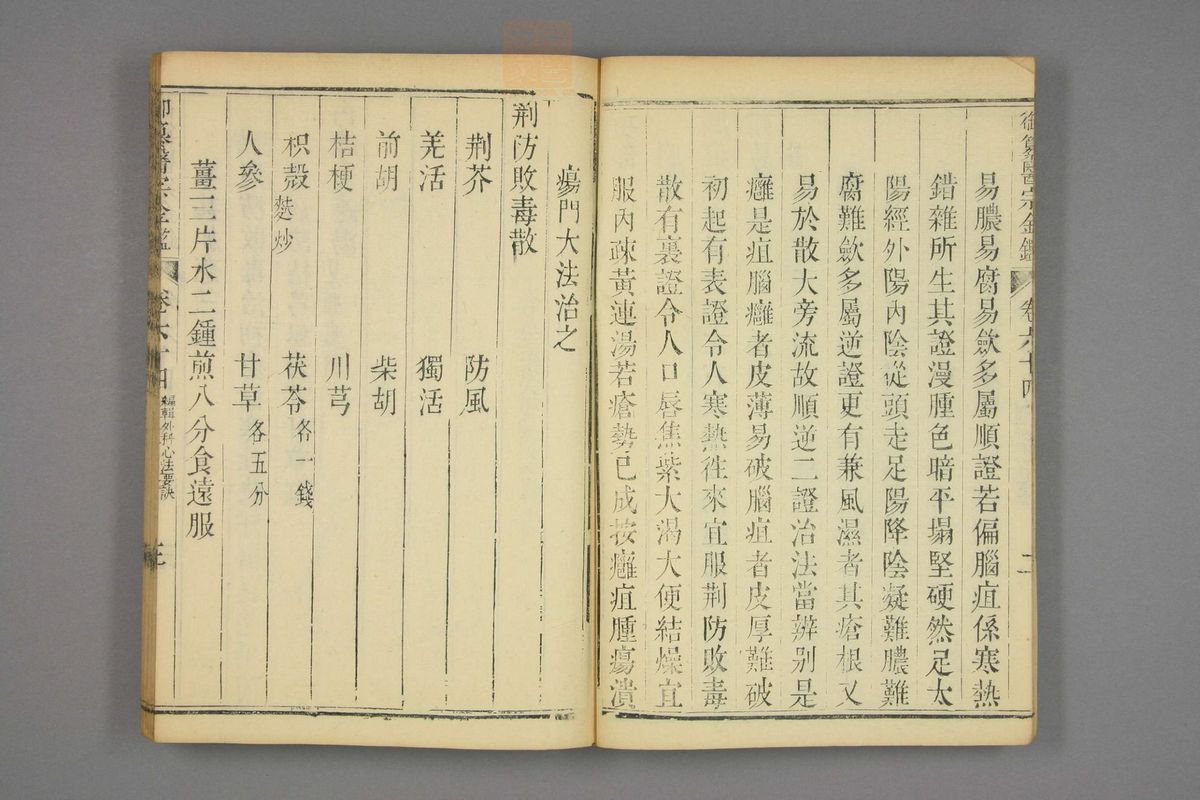 御纂醫宗金鑑 卷六十四 二
易膿易腐易歛多屬順證若偏腦疽係寒熱
錯雜所生其證漫腫色暗平塌堅硬然足太
陽經外陽內陰從頭走足陽降陰凝難膿難
腐難歛多屬逆證更有兼風濕者其瘡根又
易於散大旁流故順逆二證治法當辨别是
癰是疽腦癰者皮薄易破腦疽者皮厚難破
初起有表證令人寒熱徃來宜服荆防敗毒
散有裏證令人口唇焦紫大渴大便結燥宜
服內疎黃連湯若瘡勢已成按癰疽腫瘍潰
瘍門大法治之
荆防敗毒散
荆芥 防風
羌活 獨活
前胡 柴胡
桔梗 川芎
枳殼麩炒 茯苓各一錢
人參 甘草各五分
薑三片水二鍾煎八分食遠服
醫宗金鑑 卷六十四 編輯外科心法要訣